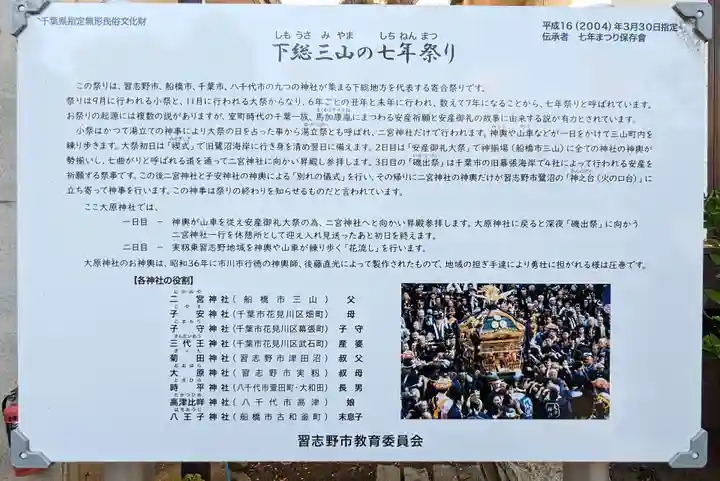 千葉県指定無形民俗文化財
平成16(2004)年3月30日指定
伝承者 七年まつり保存會
しもうさみやま しちねんまつ
下総三山の七年祭り
この祭りは、習志野市、船橋市、千葉市、八千代市の九つの神社が集まる下総地方を代表する寄合祭りです。
祭りは9月に行われる小祭と、11月に行われる大祭からなり、6年ごとの丑年と未年に行われ、数えて7年になることから、七年祭りと呼ばれています。
お祭りの起源には複数の説がありますが、室町時代の千葉一族、馬加康胤にまつわる安産祈願と安産御礼の故事に由来する説が有力とされています。
小祭はかつて湯立ての神事により大祭の日を占った事から湯立祭とも呼ばれ、二宮神社だけで行われます。神輿や山車などが一日をかけて三山町内を
練り歩きます。大祭初日は「禊式」で旧鷺沼海岸に行き身を清め翌日に備えます。2日目は「安産御礼大祭」で神揃場(船橋市三山)に全ての神社の神輿が
勢揃いし、七曲がりと呼ばれる道を通って二宮神社に向かい昇殿し参拝します。3日目の「磯出祭」は千葉市の旧幕張海岸で4社によって行われる安産を
祈願する祭事です。この後二宮神社と子安神社の神輿による「別れの儀式」を行い、その帰りに二宮神社の神輿だけが習志野市鷺沼の「神之台(火の口台)」に
立ち寄って神事を行います。この神事は祭りの終わりを知らせるものだと言われています。
ここ大原神社では、
一日目 − 神輿が山車を従え安産御礼大祭の為、二宮神社へと向かい昇殿参拝します。大原神社に戻ると深夜「磯出祭」に向かう
二宮神社一行を休憩所として迎え入れ見送ったあと初日を終えます。
二日目 − 実籾東習志野地域を神輿や山車が練り歩く「花流し」を行います。
大原神社のお神輿は、昭和36年に市川市行徳の神輿師、後藤直光によって製作されたもので、地域の担ぎ手達により勇壮に担がれる様は圧巻です。
【各神社の役割】
二宮神社(船橋市三山) 父
子安神社(千葉市花見川区畑町) 母
子守神社(千葉市花見川区幕張町) 子守
三代王神社(千葉市花見川区武石町) 産婆
菊田神社(習志野市津田沼) 叔父
大原神社(習志野市実籾) 叔母
時平神社(八千代市萱田町・大和田) 長男
高津比咩神社(八千代市高津) 娘
八王子神社(船橋市古和釜町) 末息子
習志野市教育委員会